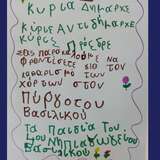 Κυρία Δήμαρχε
Κύριε Αντιδήμαρχε
Κύριε Πρόεδρε
Σας παρακαλούμε να
φροντίσετε για τον
καθαρισμό των
χόρτων στον
Πύργο του
Βασιλικού
Τα παιδιά του
1ου Νηπιαγωγείου
Βασιλικού